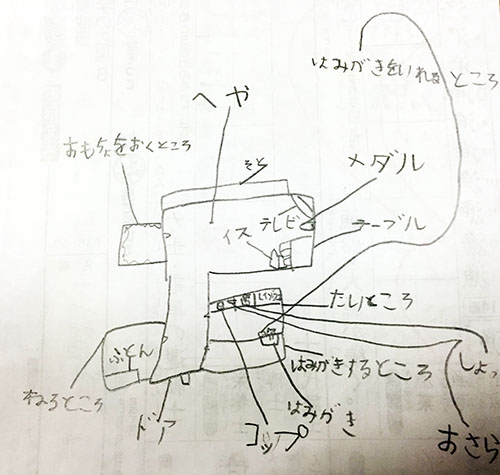 はみがきをいれるところ
へや
おもちゃをおくところ
そと
メダル
テレビ
イス
テーブル
たいところ
ふとん
はみがきするところ
ねるところ
ドア
コップ
はみがき
しょっ
おさら